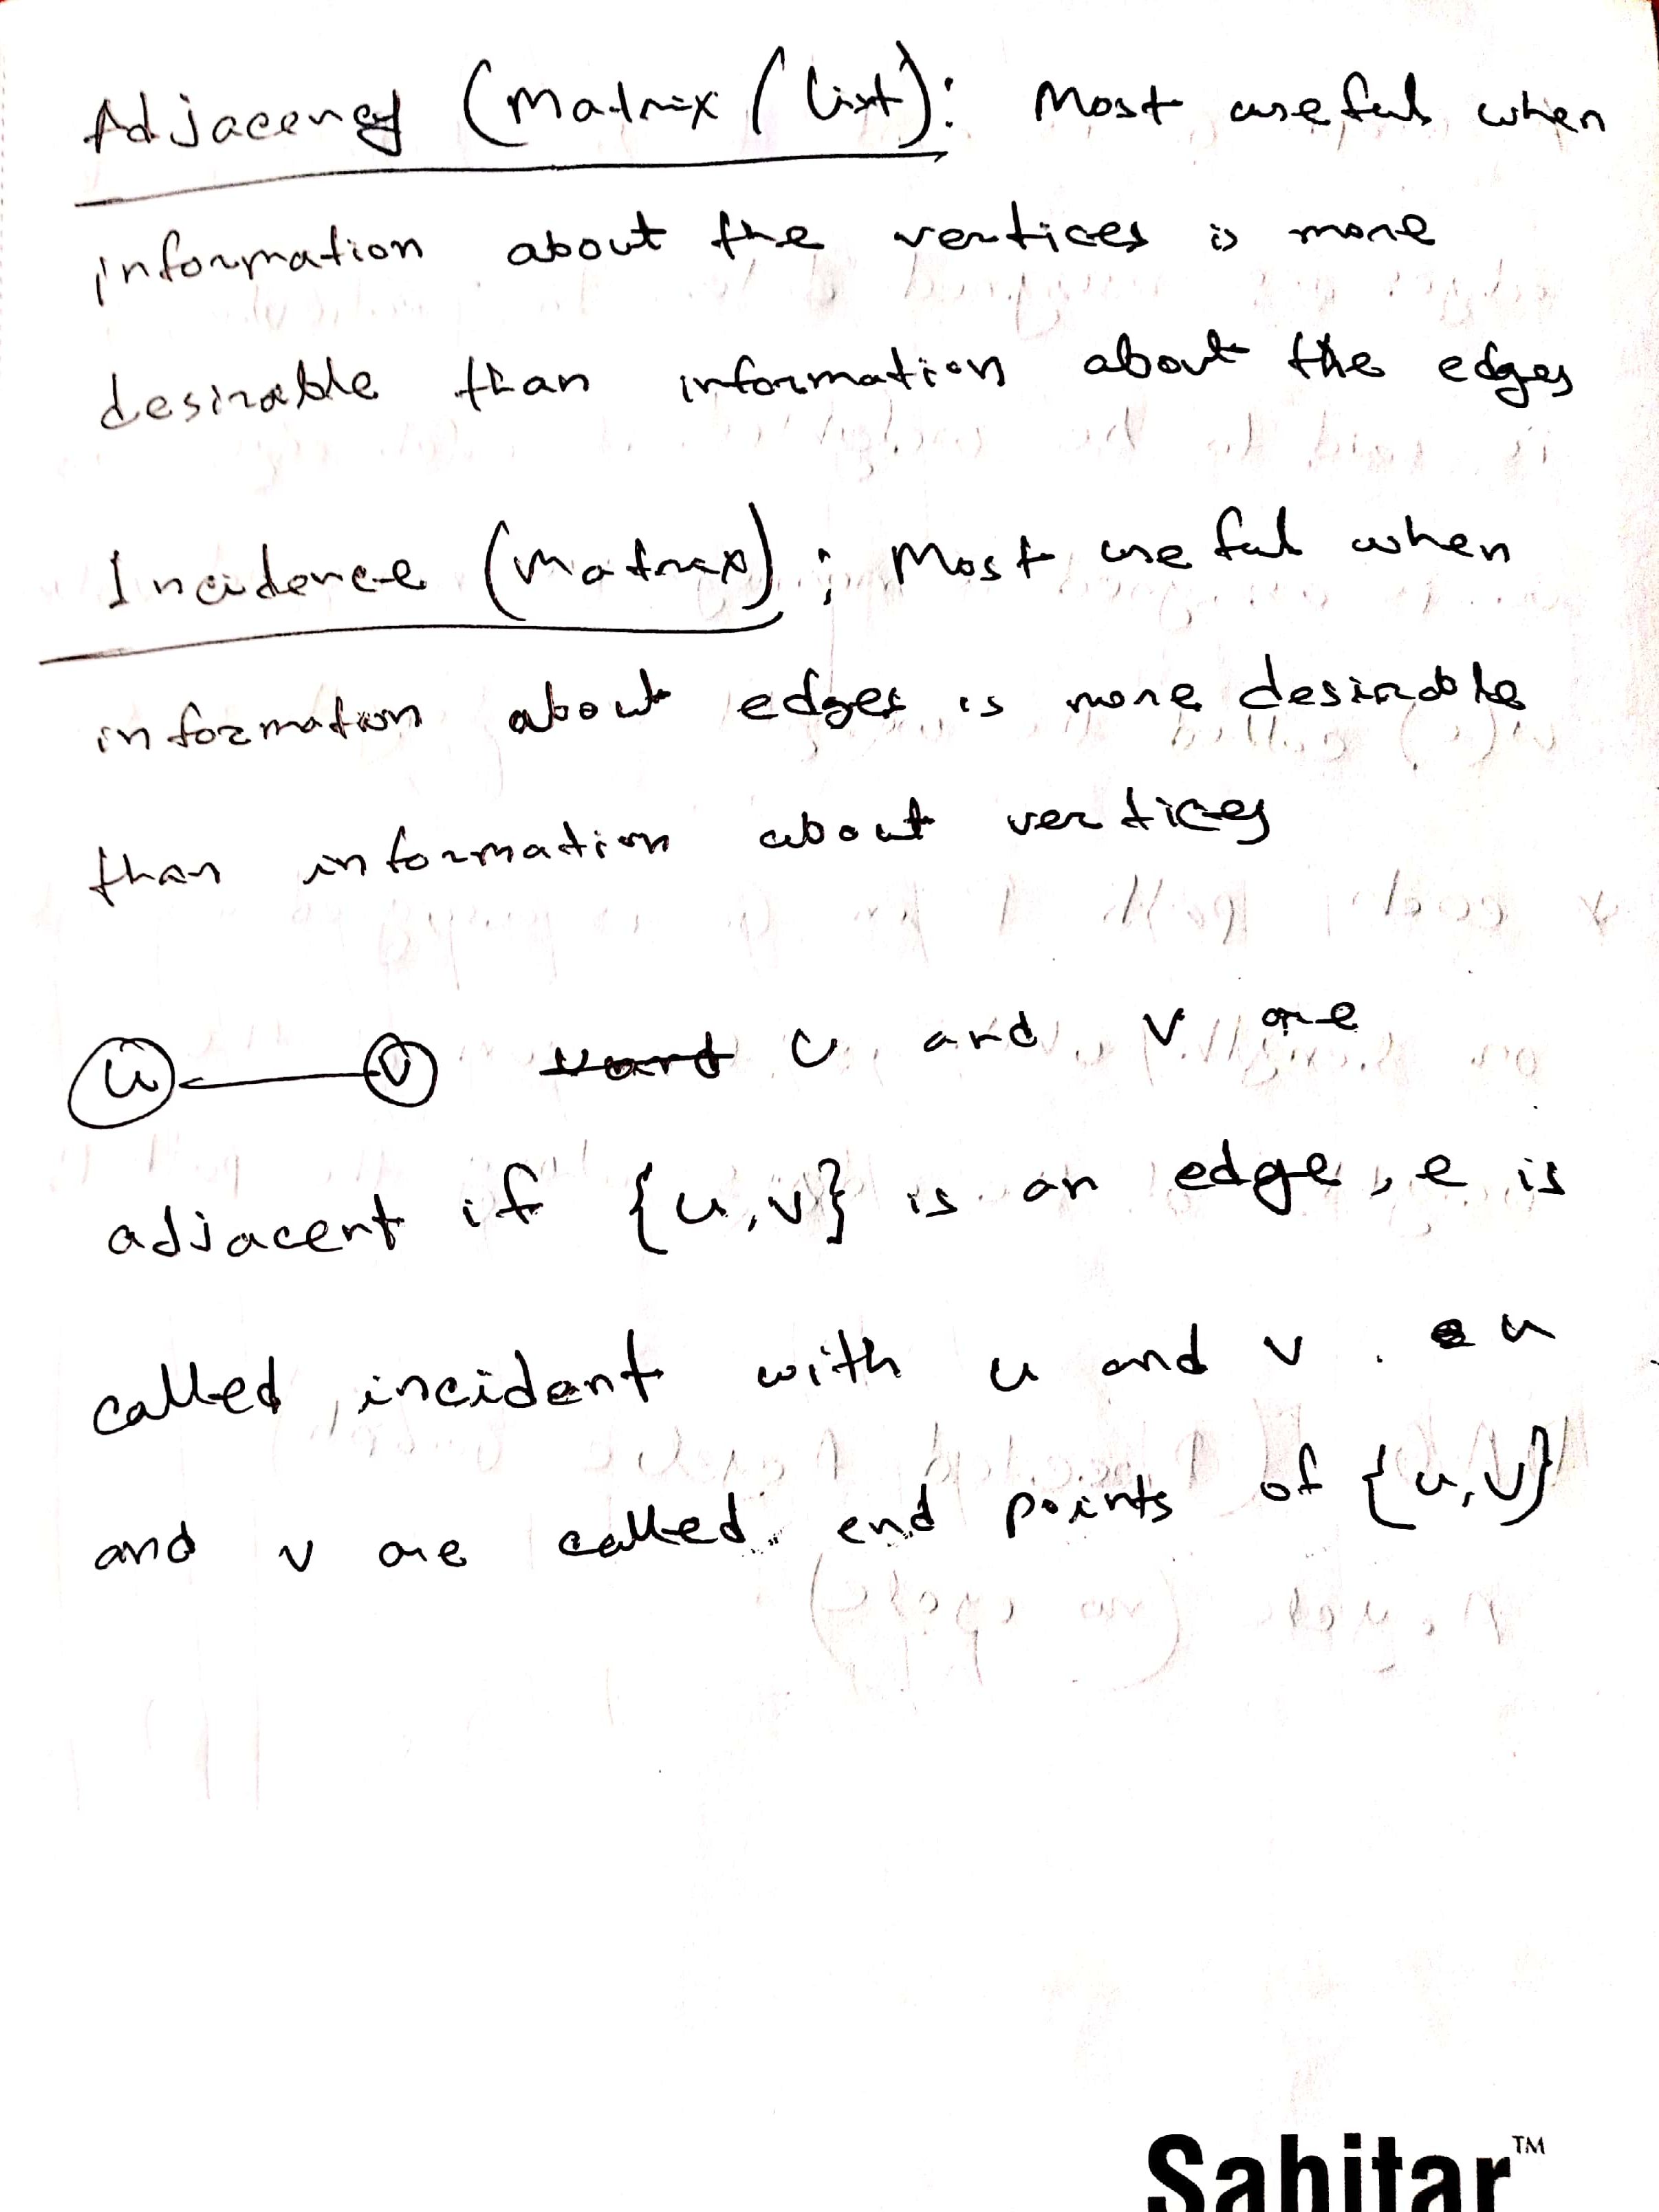 Adjacency (Matrix / List): Most useful when
information about the vertices is more
desirable than information about the edges
Incidence (Matrix): Most useful when
information about edges is more desirable
than information about vertices
u v u and v are
adjacent if {u,v} is an edge, e is
called incident with u and v. u
and v are called end points of {u,v}
Sabitar™